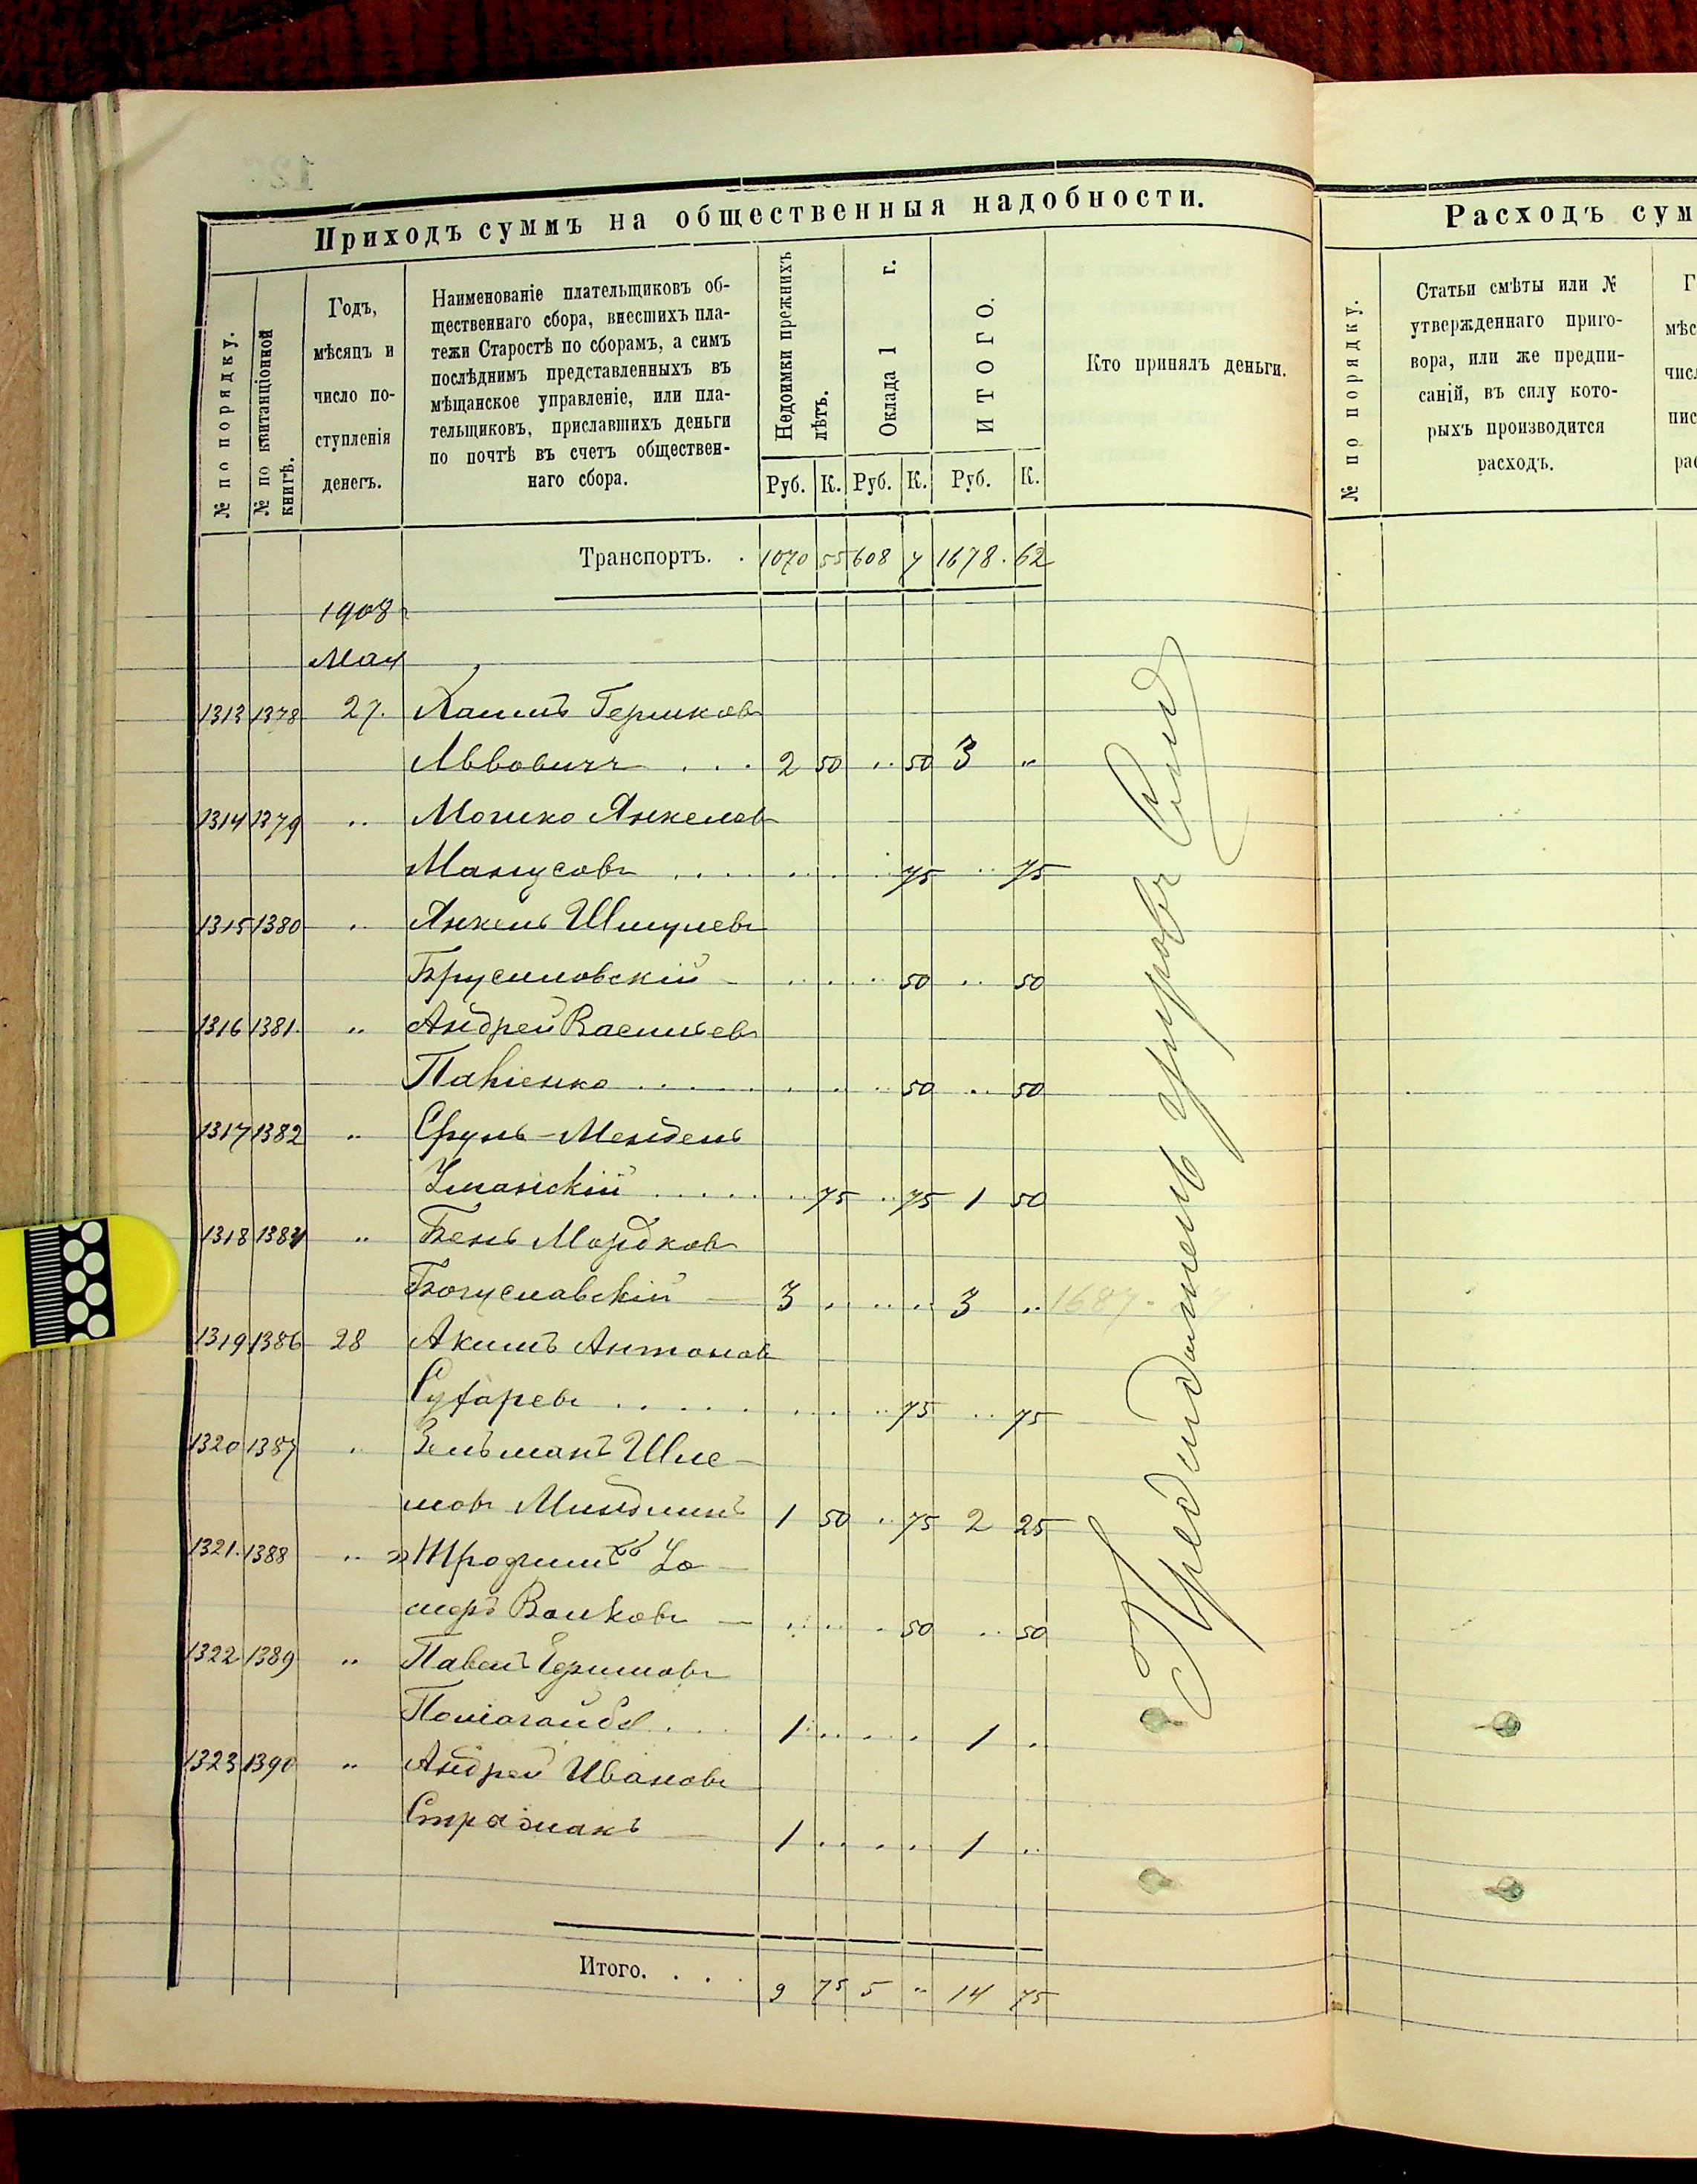 Приходъ суммъ на общественныя надобности.
№ по порядку.
№ по квитанціонной книгѣ.
Годъ,
мѣсяцъ и
число по-
ступленія
денегъ.
Наименованіе плательщиковъ об-
щественнаго сбора, внесшихъ пла-
тежи Старостѣ по сборамъ, а симъ
послѣднимъ представленныхъ въ
мѣщанское управленіе, или пла-
тельщиковъ, приславшихъ деньги
по почтѣ въ счетъ обществен-
наго сбора.
Недоимки прежнихъ лѣтъ.
Оклада 1 г.
ИТОГО.
Руб. К. Руб. К. Руб. К.
Кто принялъ деньги.
Транспортъ. . 1070 55 608 7 1678. 62
1908
Мая
1313 1378 27. Хаимъ Гершковъ
Львовичъ . . . 2 50 .. 50 3 "
1314 1379 " Мошко Янкелевъ
Манусовъ . . . . 75 .. 75
1315 1380 " Янкель Шмулевъ
Брусиловскій 50 .. 50
1316 1381. " Андрей Васильевъ
50 .. 50
1317 1382 " Срулъ-Мендель
Уманскій . . . . . 75 .. 75 1 50
1318 " Бенъ Мордковъ
Богуславскій 3 . . . . 3 ..
1319 1386 28 Акимъ Антоновъ
. . . . . 75 .. 75
1320 1387 " Зельманъ Шле-
мовъ Миндлинъ 1 50 .. 75 2 25
1321. 1388 "
Волковъ 50 .. 50
1322 1389 " Павелъ
1 . . . . 1 .
1323 1390 " Андрей Ивановъ
1 . . . . 1 ..
Итого. . . . 9 75 5 " 14 75
Расходъ сум
№ по порядку.
Статьи смѣты или №
утвержденнаго приго-
вора, или же предпи-
саній, въ силу кото-
рыхъ производится
расходъ.
Г
мѣс
чис
пис
рас